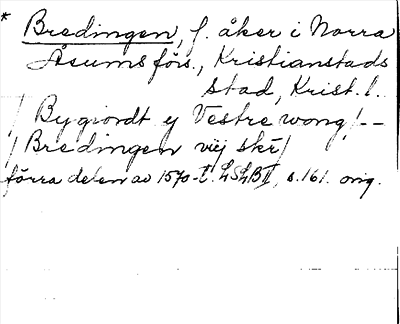 * Bredingen, f. åker i Norra
Åsums förs., Kristianstads
stad, Krist. l.
/ Bygiordt ej Vestre wong/--
/ Bredingen vij skr/
förra delen av 1570-t. LSLB II, s. 161. orig.